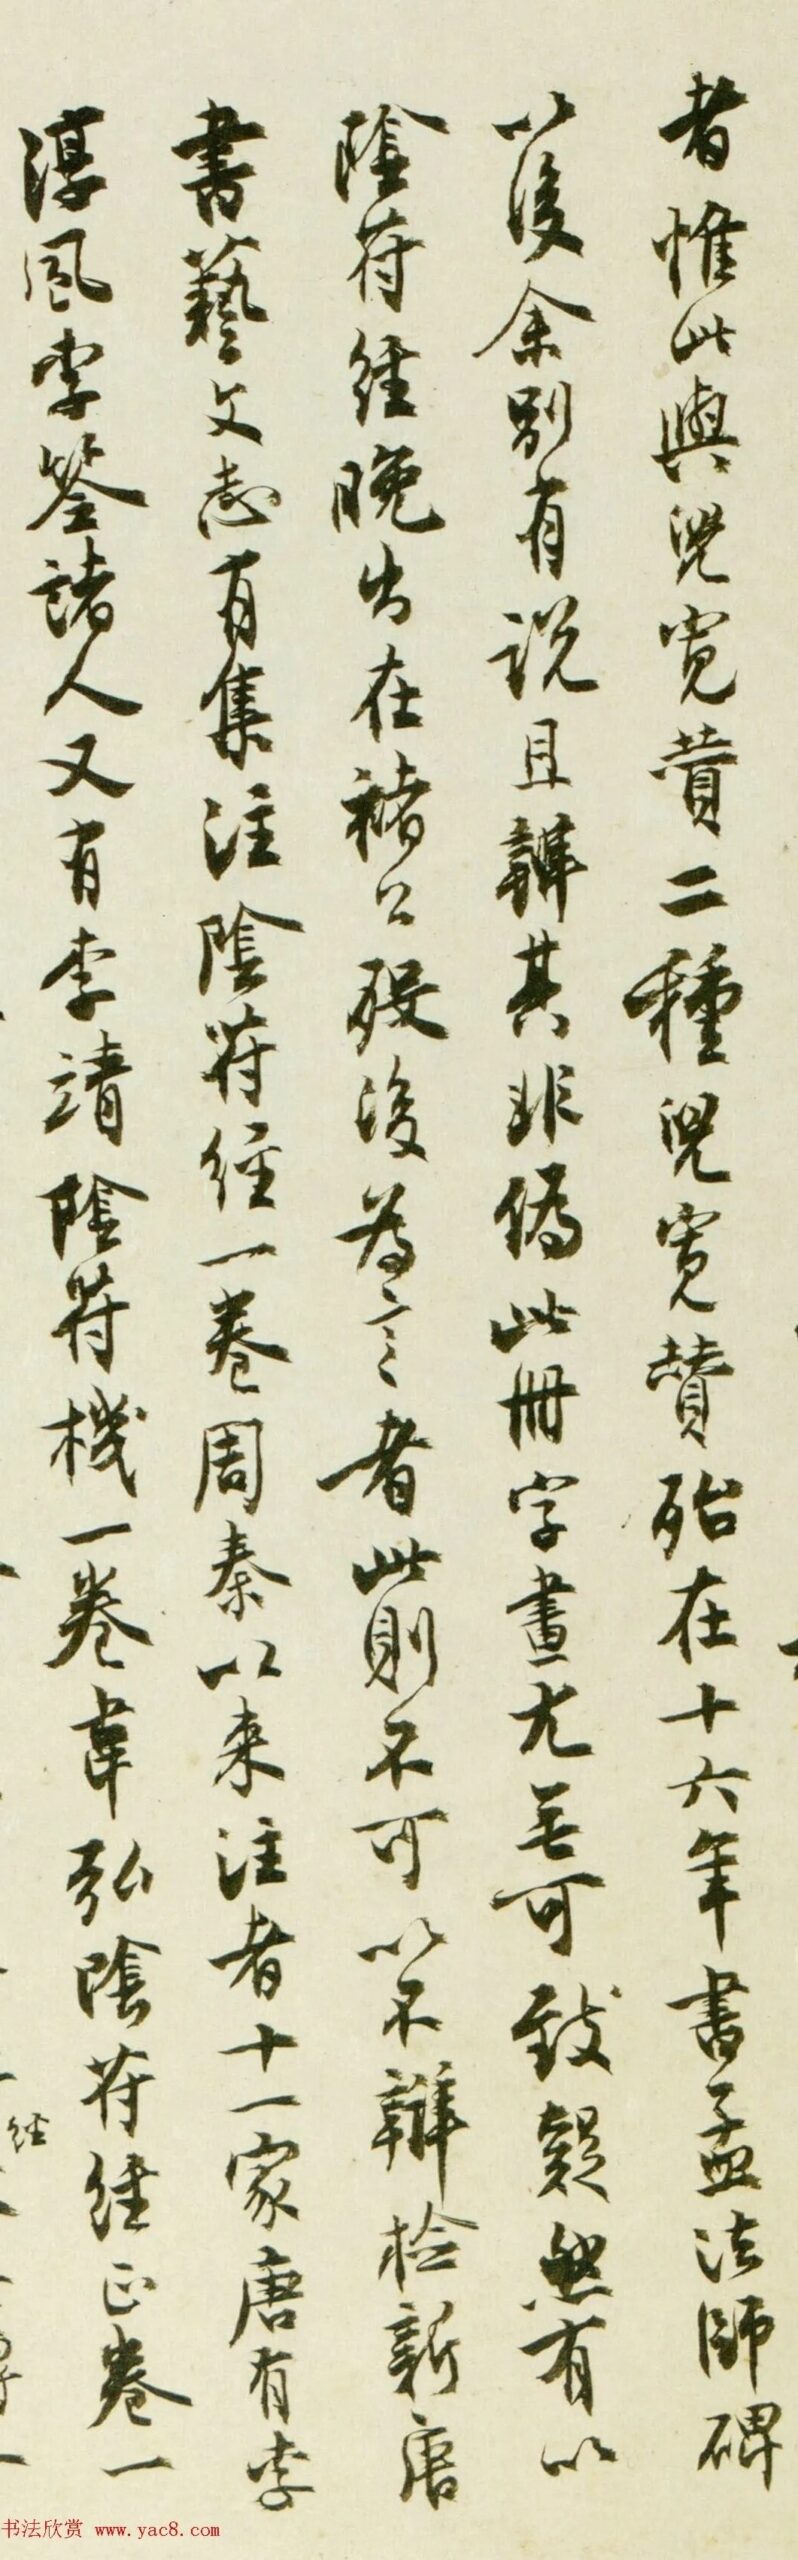 者惟此與兒寬贊二種兒寬贊殆在十六年書孟法師碑
以後余別有說且辨其非偽此冊字畫尤無可致疑然有以
陰符經晚出在褚公歿後為言者此則不可以不辨檢新唐
書藝文志有集注陰符經一卷周秦以來注者十一家唐有李
淳風李筌諸人又有李靖陰符機一卷韋弘陰符經正卷一
經
书法欣赏 www.yac8.com